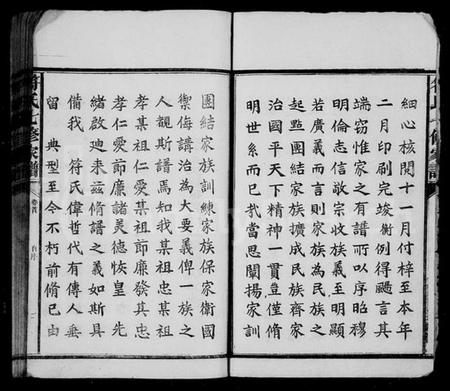 細心核閱十一月付梓至本年
二月印刷完竣衡例得颺言其
端窃惟家之有譜所以序昭穆
明倫志信敬宗收族義至明顯
若廣義而言則家族為民族之
起點團結家族擴成民族齊家
治國平天下精神一貫豈僅脩
明世系而已我當思闡揚家訓
團結家族訓練家族保家衛國
禦侮講治為大要義俾一族之
人覩斯譜焉知我某祖忠某祖
孝某祖仁愛某祖節廉發真忠
孝仁愛節廉諸美德恢皇先
緒啟迪来茲脩譜之義如斯具
備我符氏偉哲代有傳人垂
典型至今不朽前脩已由
留
符氏七修家譜
卷首